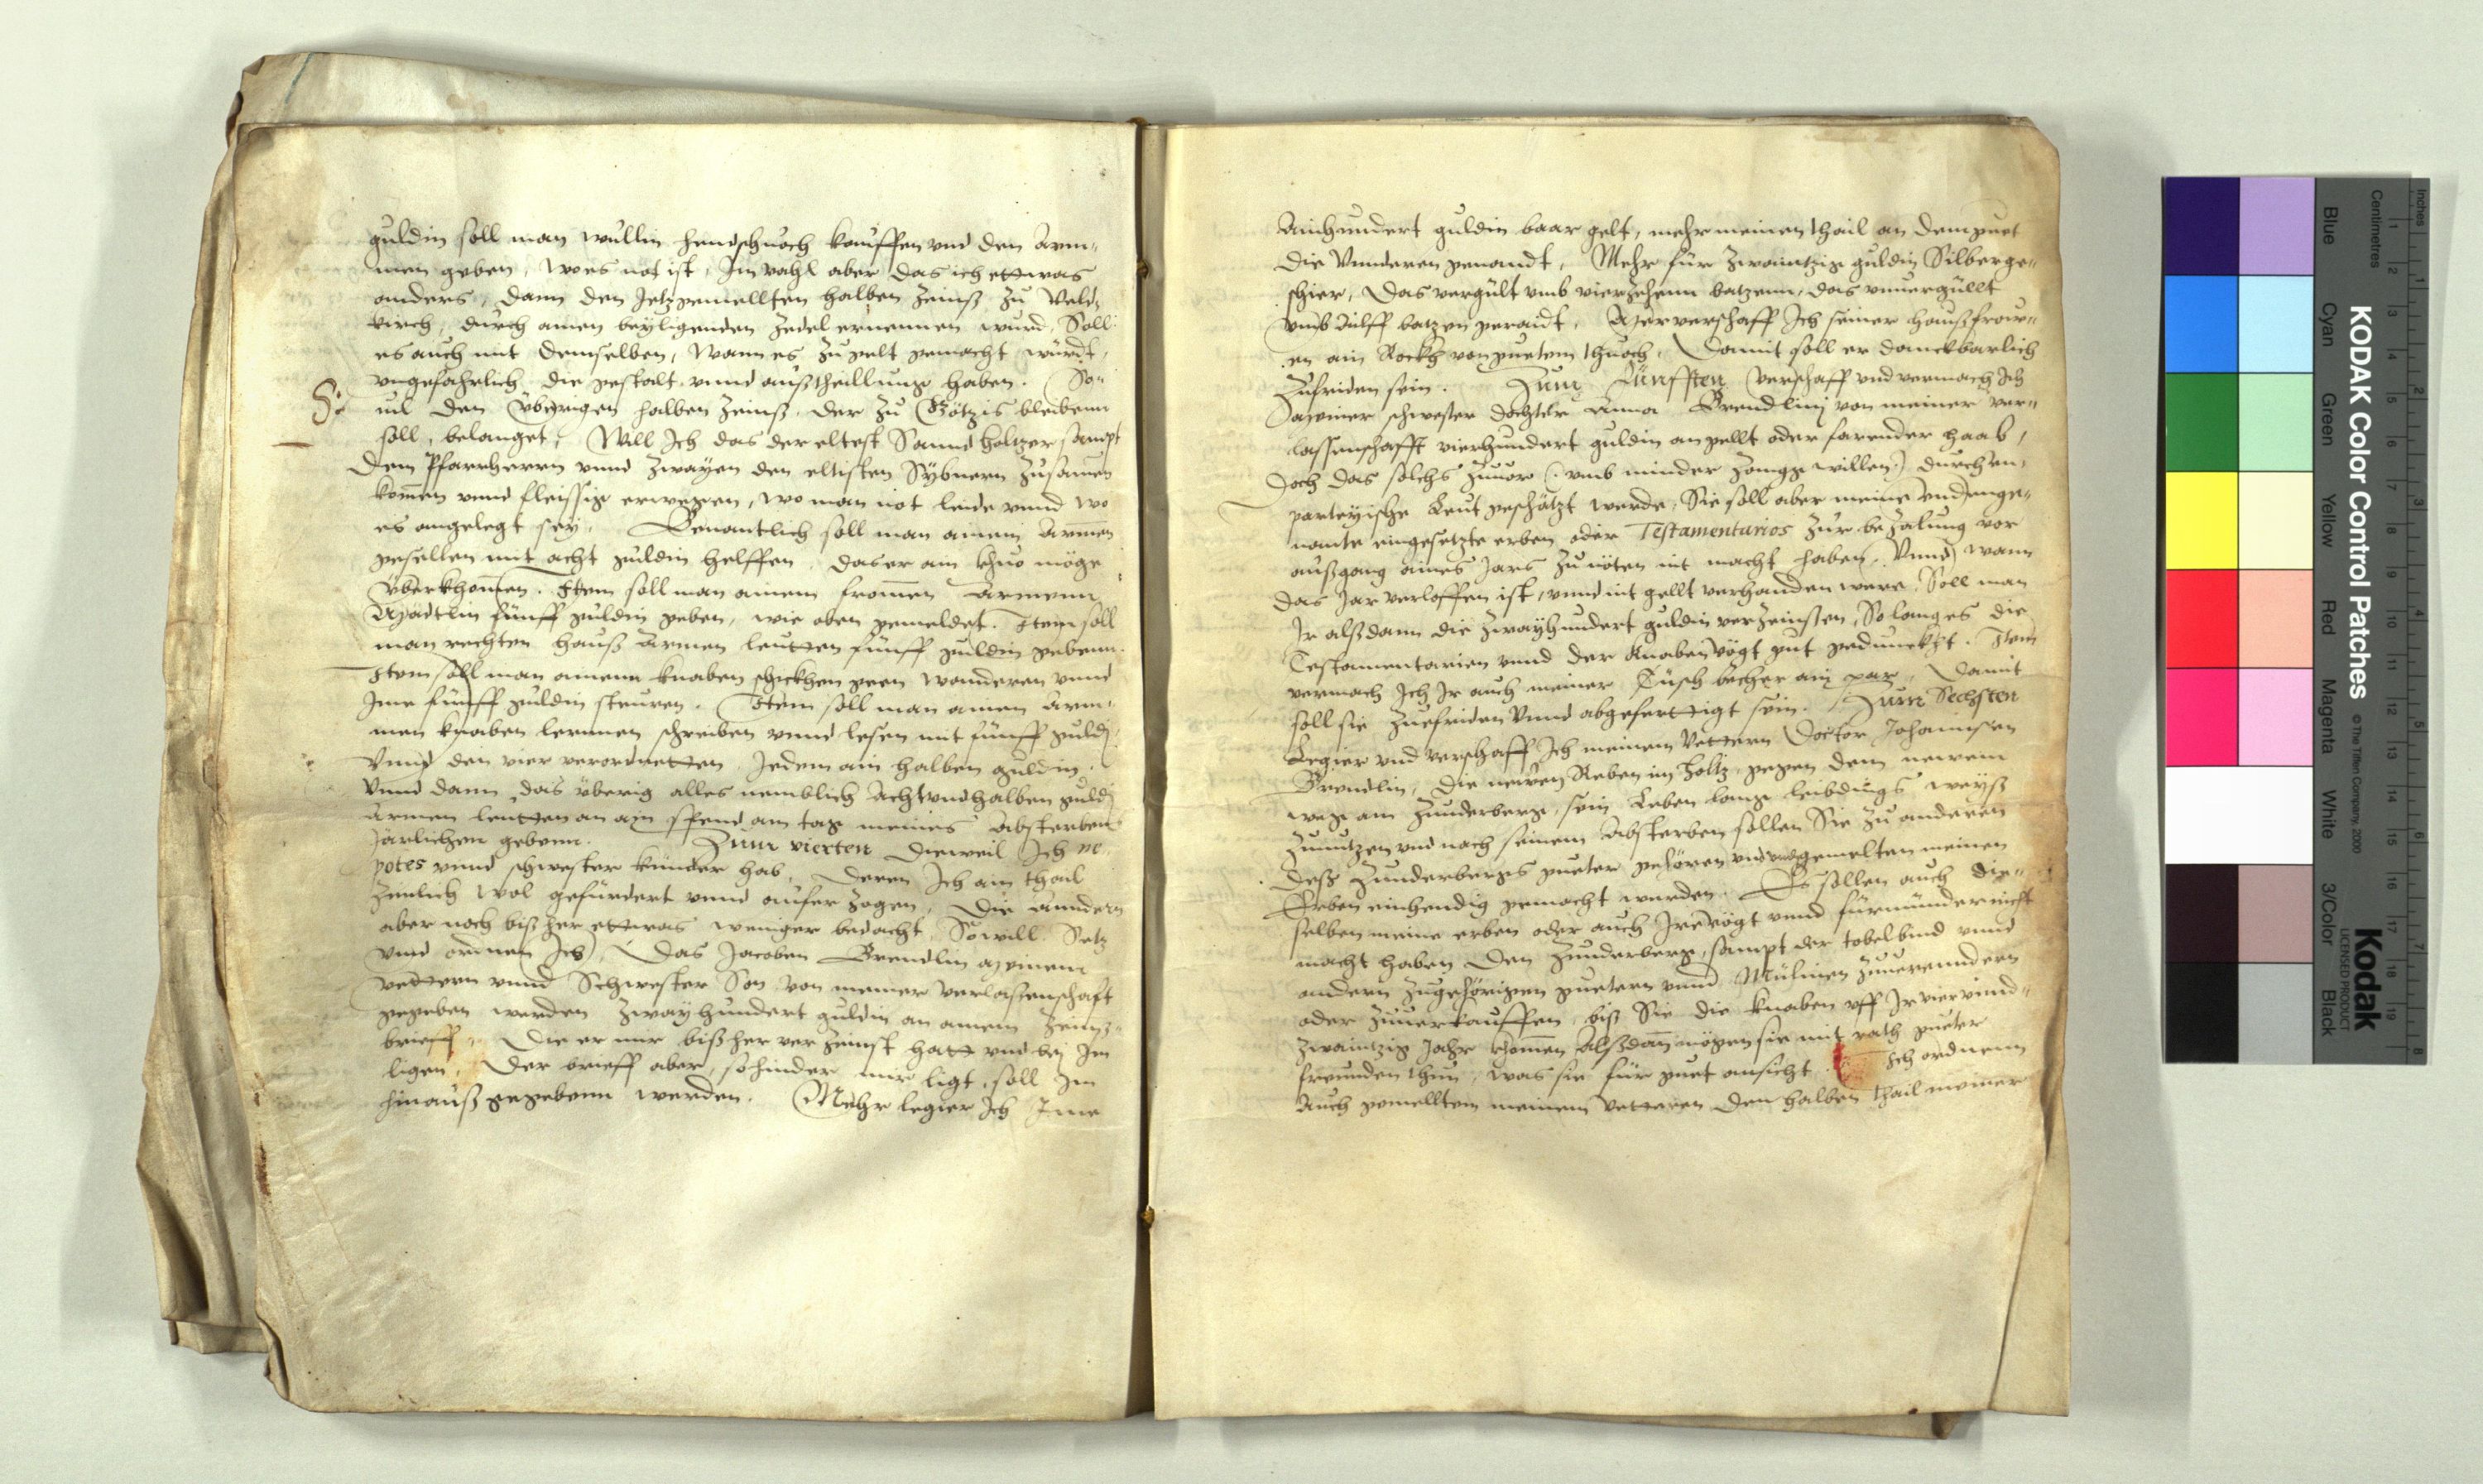 guldin soll man wullin handschuoch kauffen vnd den arm-
men geben, wo es not ist, Im vahl aber das ich ettwas
anders, dann den Jetzgemellten halben Zeinß zu Veld-
kirch, durch ainen beyligenden Zedel ernennen wurd, Soll
es auch mit demselben, Wann es zu gelt gemacht würdt,
vngefahrlich die gestalt vnnd außtheillung haben. So-
uil den Überigen halben Zeinß, der zu Götzis bleibenn
soll, belanget, Will Ich das der eltest Sannd holtzer sampt
dem Pfarrherrn vnnd zwayen den eltisten Sybnern zusamen
komen vnnd fleissig erwegen, wo man not leide vnnd wo
es angelegt sey. Benantlich soll man ainem Armen
gesellen mit acht guldin helffen, das er ain khuo möge
Überkhomen. Item soll man ainem fromen Armenn
Mädtlin fünff guldin geben, wie oben gemeldet. Item soll
man rechten hauß Armen leutten fünff guldin gebenn.
Item soll man ainem knaben schickhen geen Wanderen vnnd
Jme fünff guldin steuren. Item soll man ainen arm-
men knaben lernnen schreiben vnnd lesen mit fünff guldi
Vnnd den vier verordnetten Jedem ain halben guldin.
Vnnd dann das überig alles nemblich Acht vnd halben guldi
Armen leutten an ain spend am tag meines Absterbens
Järlichen gebenn. Zum vierten Dieweil Ich ne-
potes vnnd schwester kinder hab, Deren Ich ain thail
Zimlich Wol gefürdert vnnd auferzogen, Die anndern
aber noch bißher ettwas weniger bedacht, So will, Setz
vnnd ordnen Ich, Das Jacoben Brendlin meinem
vettern vnnd Schwester Son von meiner verlassenschaft
gegeben werden Zwayhundert guldin an ainem Zeinß-
brieff, Die er mir bißher verzeinst hatt vnd bei Jm
ligen, Der brieff aber, so hinder mir ligt, soll Jm
hinauß gegebenn werden. Mehr legier Ich Jme
Ainhundert guldin baar gelt, mehr meinen thail an dem guet
die Vnnderen genandt, Mehr für zwaintzig guldin Silberge-
schier, Das vergült vmb vierzehenn batzenn, das vnuergüllt
vmb Ailff batzen geraidt, Mer verschaff Ich seiner haußfrow-
en ain Rockh von guetem thuoch, Damit soll er danckbarlich
zufriden sein. Zum Fünfften verschaff vnd vermach Ich
Meiner schwester dochter Anna Brendlin von meiner ver-
lassenschafft vierhundert guldin an gellt oder farender haab,
Doch das solchs zuuor (vmb minder zanngs willen) durch vn-
parteyische Leut geschätzt werde, Sie soll aber meine vndenge-
nante eingesetzte erben oder Testamentarios zur bezalung vor
außgang aines Jars zu nöten nit macht haben. Vnnd wann
das Jar verloffen ist, vnnd nit gellt verhanden were, Soll man
Jr alßdann die zwayhundert guldin verzeinsen, So lang es die
Testamentarien vnnd der knaben vögt gut gedunckht. Item
vermach Ich Jr auch meiner Tisch becher ain par, Damit
soll sie zuefriden Vnnd abgeferttigt sein. Zum Sechsten
Legier vnd verschaff Ich meinem Vettern Doctor Johannsen
Brendlin, Die newen Reben im Holtz, gegen dem newem
weg am Zunderberg, sein Leben lang leibdings weyß
zunutzen vnd nach seinem Absterben sollen Sie zu anderen
deß Zunderbergs gueter gehören vnd vndgemelten meinen
Erben einhendig gemacht werden. Es sollen auch die-
selben meine erben oder auch Jre vögt vnnd fürmünder nicht
macht haben Den Zunderberg, sampt der tobel bünd vnnd
andern zugehörigen guetern vnnd Mülinen zuuerenndern
oder zuuerkauffen, biß Sie die knaben vff Jr viervnnd-
zwaintzig Jahr khomen, Alßdan mögen sie mit rath gueter
freunden thun, was sie für guet ansicht. Ich ordnenn
Auch gemelltem meinem Vetteren den halben thail meiner